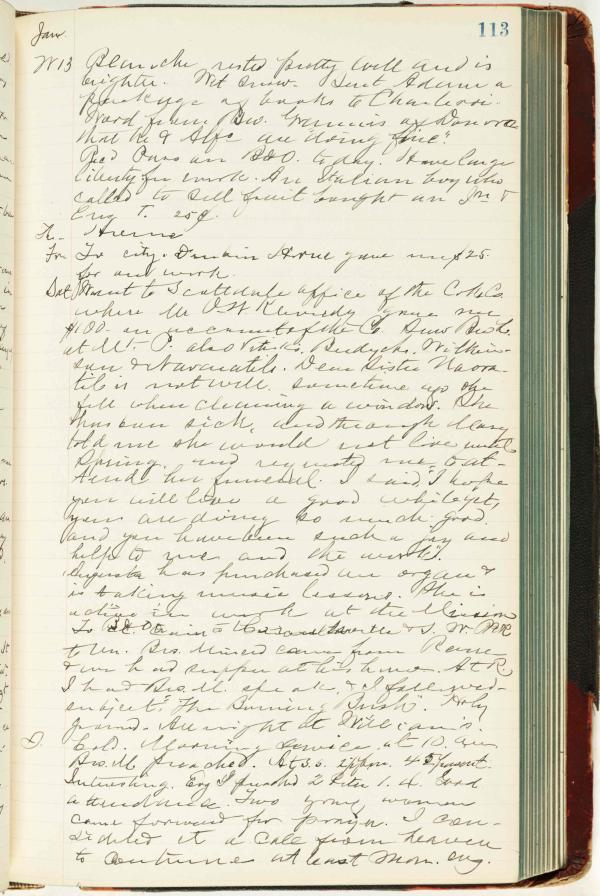 113
Jan.
W 13 Blanche rested pretty well and is
brighter. Wet snow. Sent Adam a
package of books to Charleroi.
Word from Bro. of Donora
that he & wife are "doing fine".
Rec'd Pass on B&O. to day. Have large
liberty for work. An Italian boy who
called to sell fruit bought an &
Eng T. 25¢.
Th. Home
Fri To city. Durbin Horne gave me $25.
for our work.
Sat Went to Scottdale office of the Coke Co.
where Mr O W Kennedy gave me
$100. on account of the Co. Saw
at Mt. P. also
son & Navratils. Dear Sister Navra-
til is not well. Sometime ago she
fell when cleaning a window. She
has been sick, and through Mary
told me she would not live until
Spring, and requested me to at-
tend her funeral. I said, I hope
you will live a good while yet,
you are doing so much good.
and you have been such a joy and
help to me and the work.
Augusta has purchased an organ &
is taking music lessons. She is
active in work at the Mission
To B&O train to & S. W. P RR
to Un. Bro. came from
& we had supper at his house. At R
I had Bro. M. speak, & I followed
subject, The Burning Bush. Holy
ground. All night at William's.
S. Cold. Morning service at 10. a.m.
Bro. M preached. At S.S. 2 p.m. 45 present.
Interesting. Evg I preached 2 Peter 1.4. Good
attendance. Two young women
came forward for prayer. I con-
sidered it a call from heaven
to continue at least Mon. evg.